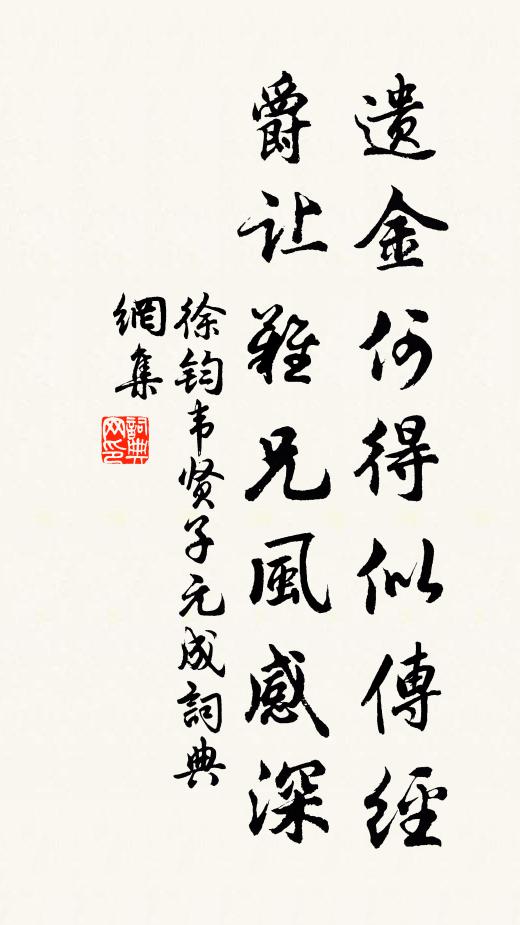 遗金何得似傳經
爵让難兄風感深
徐鈞韦贤子元成詞典
網集
詞典
网印